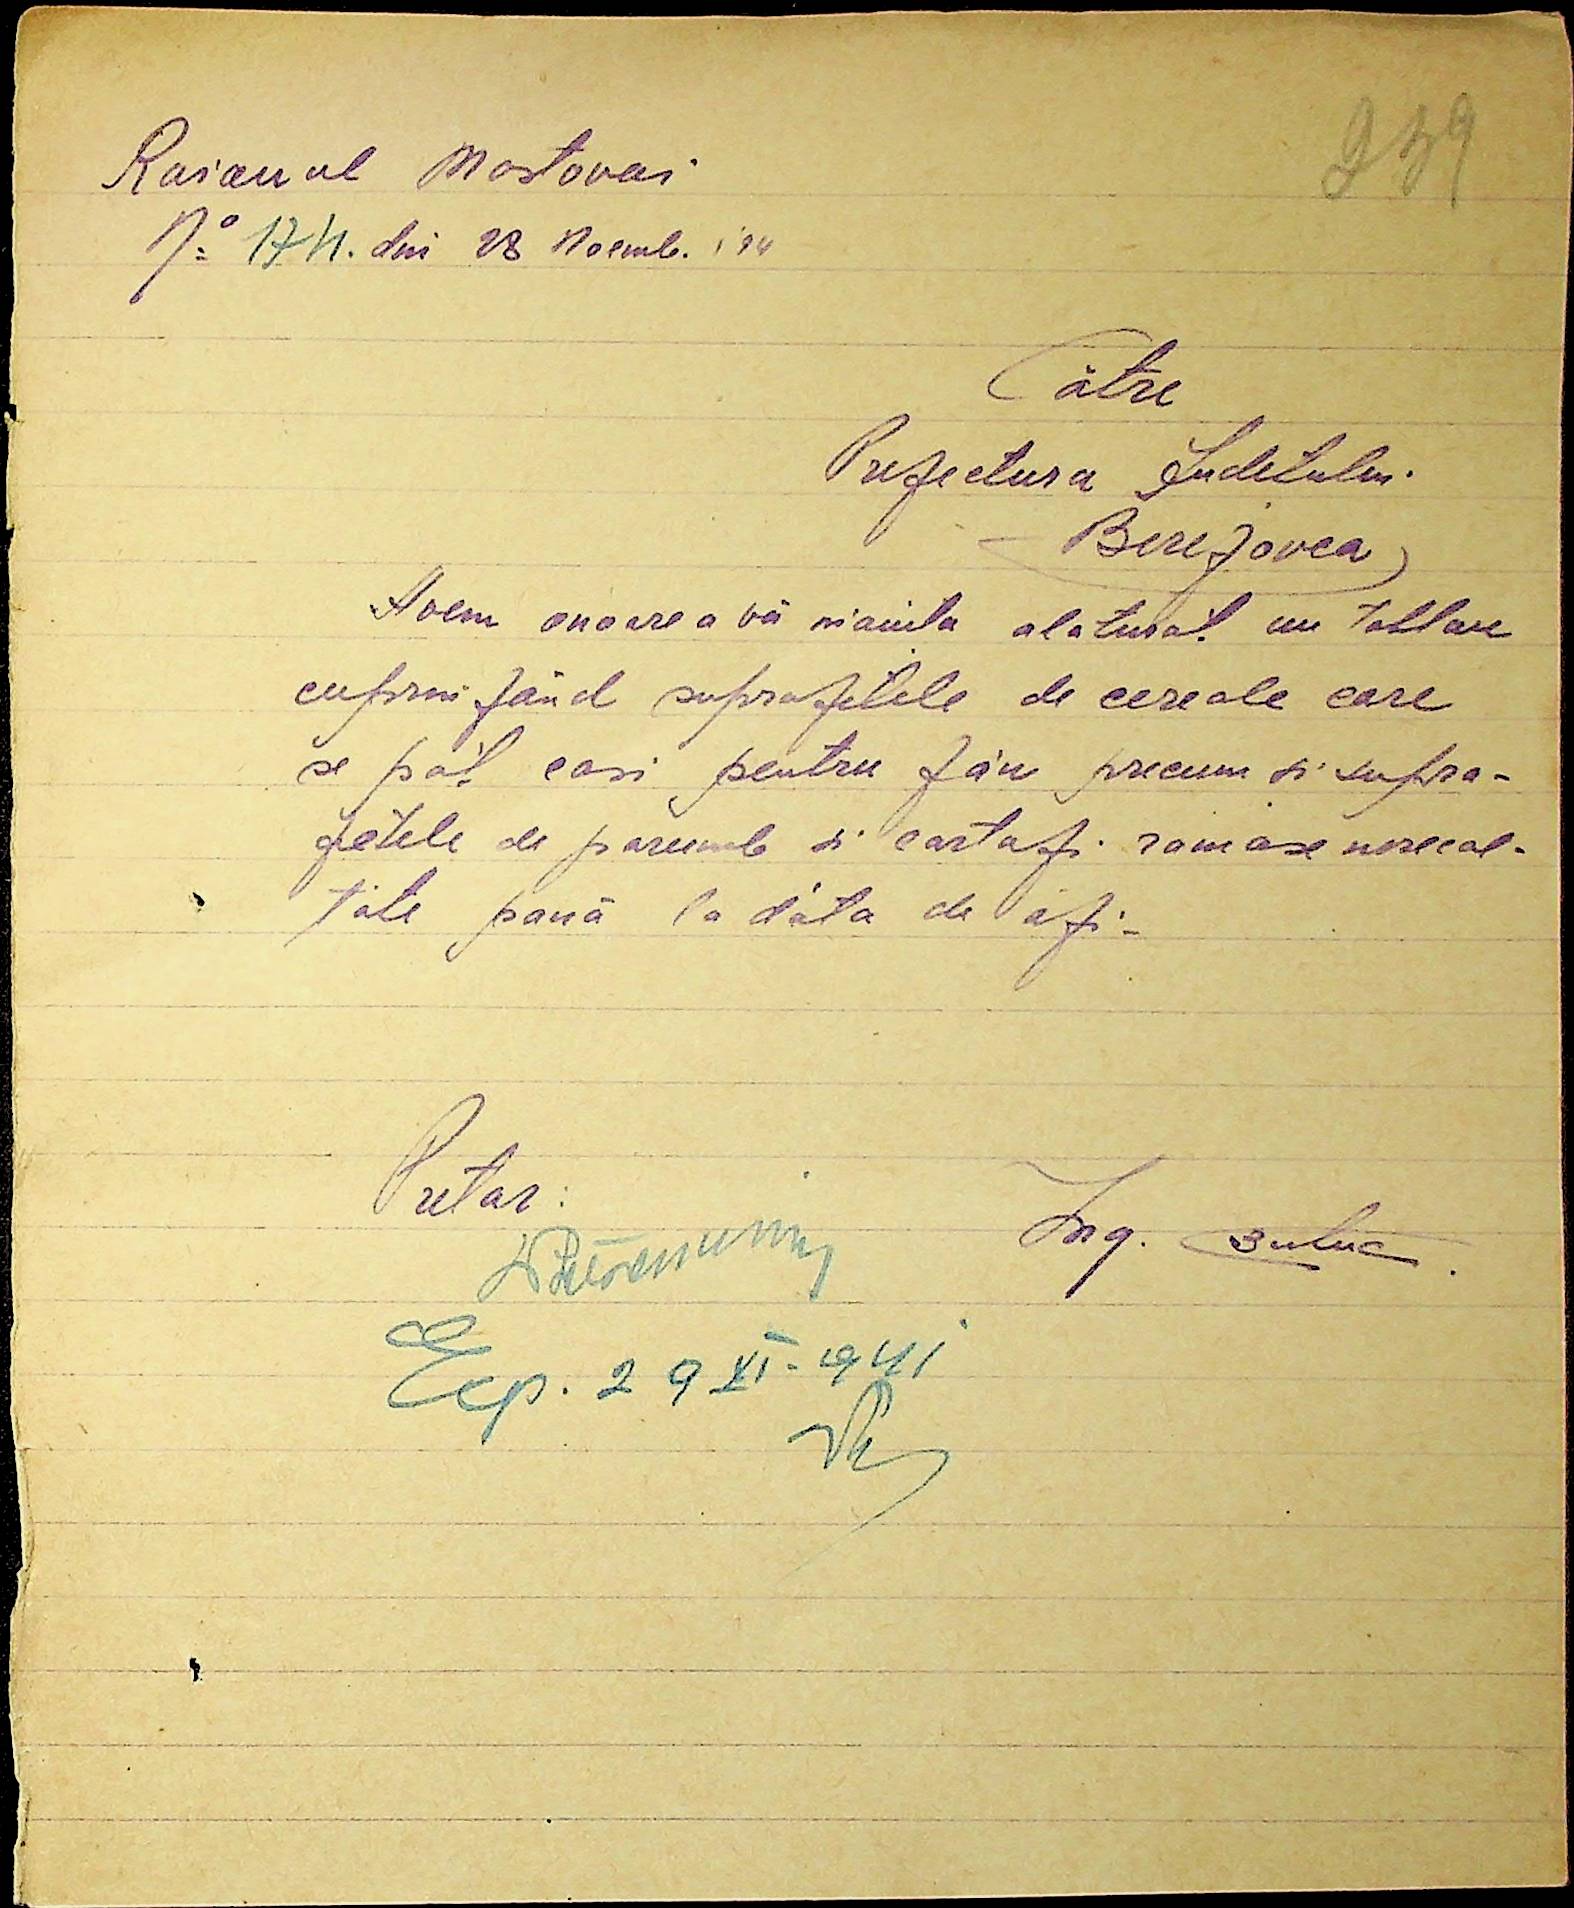 259
Raianul Mostovoi
No 174. din 28 Noemb. 194
Către
Prefectura Judetului
Berezovca
Avem onoare a vă inainta alaturat un tablou
cuprinzând suprafetele de cereale care
se pot cosi pentru fân precum si supra-
fetele de porumb si cartofi ramase nerecol-
tate pană la data de azi-
Pretor:
Ing.
Exp. 29 XI-941